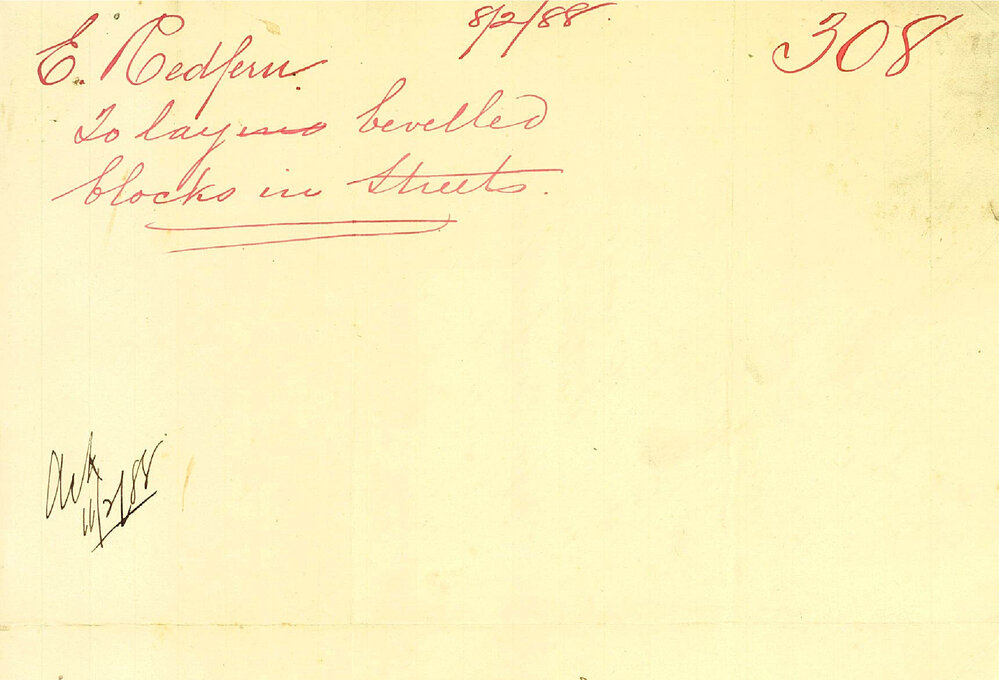 8/2/88.
308
E. Redfern.
To laying bevelled
blocks in Streets.
Ack
11/2/88